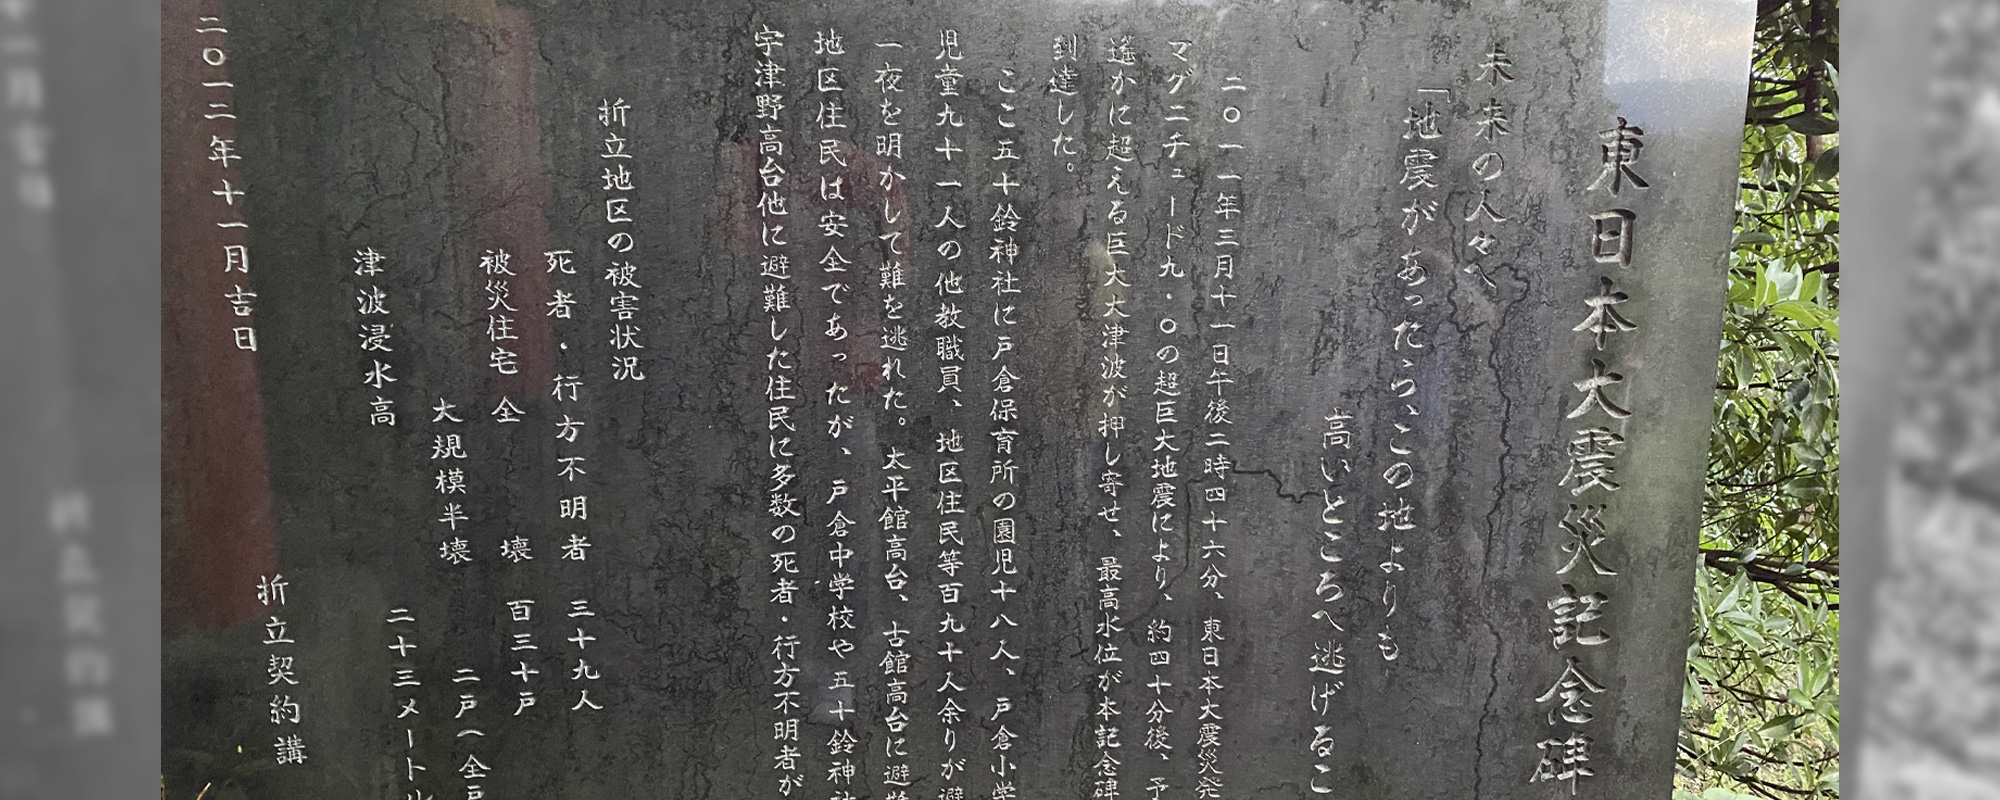 東日本大震災記念碑
未来の人々へ
「地震があったら、この地よりも
高いところへ逃げるこ
二〇一一年三月十一日午後二時四十六分、東日本大震災発
マグニチュード九・〇の超巨大地震により、約四十分後、予
遙かに超える巨大大津波が押し寄せ、最高水位が本記念碑
到達した。
ここ五十鈴神社に戸倉保育所の園児十八人、戸倉小学
児童九十一人の他教職員、地区住民等百九十人余りが避
一夜を明かして難を逃れた。太平館高台、古館高台に避難
地区住民は安全であったが、戸倉中学校や五十鈴神社
宇津野高台他に避難した住民に多数の死者・行方不明者が
折立地区の被害状況
死者・行方不明者 三十九人
被災住宅 全壊 百三十戸
大規模半壊 二戸(全戸
津波浸水高 二十三メートル
二〇一二年十一月吉日
折立契約講